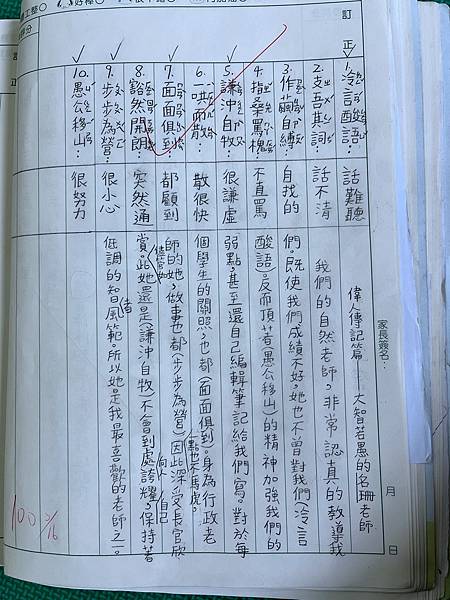 訂正
家長簽名：
月 日
1. 冷言酸語：話難聽
2. 支吾其詞：話不清
3. 作繭自縛：自找的
4. 指桑罵槐：不直罵
5. 謙沖自牧：很謙虛
6. 一哄而散：散很快
7. 面面俱到：都顧到
8. 豁然開朗：突然通
9. 步步為營：很小心
10. 愚公移山：很努力
偉人傳記篇——大智若愚的名珊老師
我們的自然老師，非常認真的教導我
們。既使我們成績不好，她也不曾對我們(冷言
酸語)。反而頂著(愚公移山)的精神加強我們的
弱點，甚至還自己編輯筆記給我們寫。對於每
個學生的關照，也都(面面俱到)。一點也不馬虎。身為行政老
師的她，做事也都(步步為營)因此深受長官欣
賞。儘管如此她還是(謙沖自牧)不會到處向人誇耀自己，保持著
低調的智者風範。所以她是我最喜歡的老師之一。
100